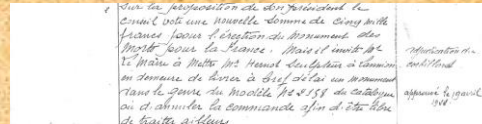 Sur la proposition de son président le
conseil vote une nouvelle somme de cinq mille
francs pour l'érection du monument des
Morts pour la France. Mais il invite Mr
Le Maire à Mettre Mr Hernot Sculpteur à Lannion
en demeure de livrer à bref délai un monument
dans le genre du Modèle No 2158 du catalogue
ou d'annuler la commande afin d'être libre
de traiter ailleurs
approuvé le 19 avril